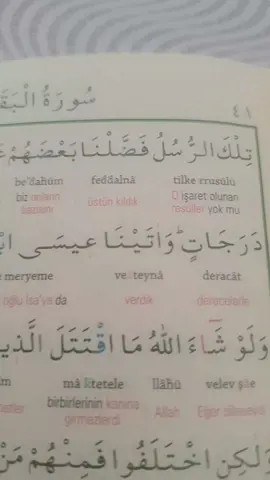 ٤١ سُورَةُ الْبَقَ
تِلْكَ الرُّسُلُ فَضَّلْنَا بَعْضَهُمْ
tilke rrusülü feddalnâ be'dahüm
O işaret olunan resuller yok mu üstün kıldık biz onların bazısını
دَرَجَاتٍ وَاٰتَيْنَا عٖيسَى ابْ
deracât ve teynâ meryeme
derecelerle verdik oğlu İsa'ya da
وَلَوْ شَٓاءَ اللّٰهُ مَا اقْتَتَلَ الَّذٖي
velev şâe llâhü mâ ktetele
Eğer dileseydi Allah birbirlerinin kanına girmezlerdi
وَلٰكِنِ اخْتَلَفُوا فَمِنْهُمْ مَنْ